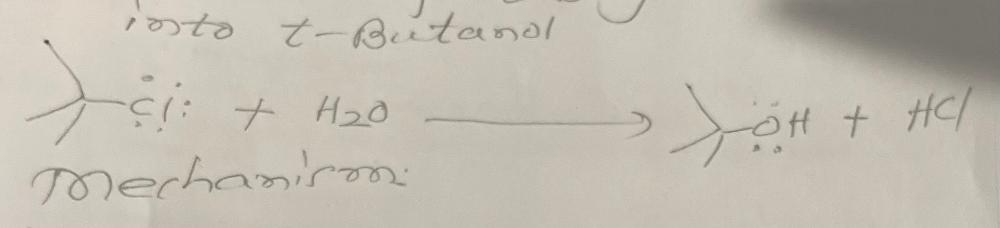 into t-Butanol
Cl + H2O → OH + HCl
Mechanism: